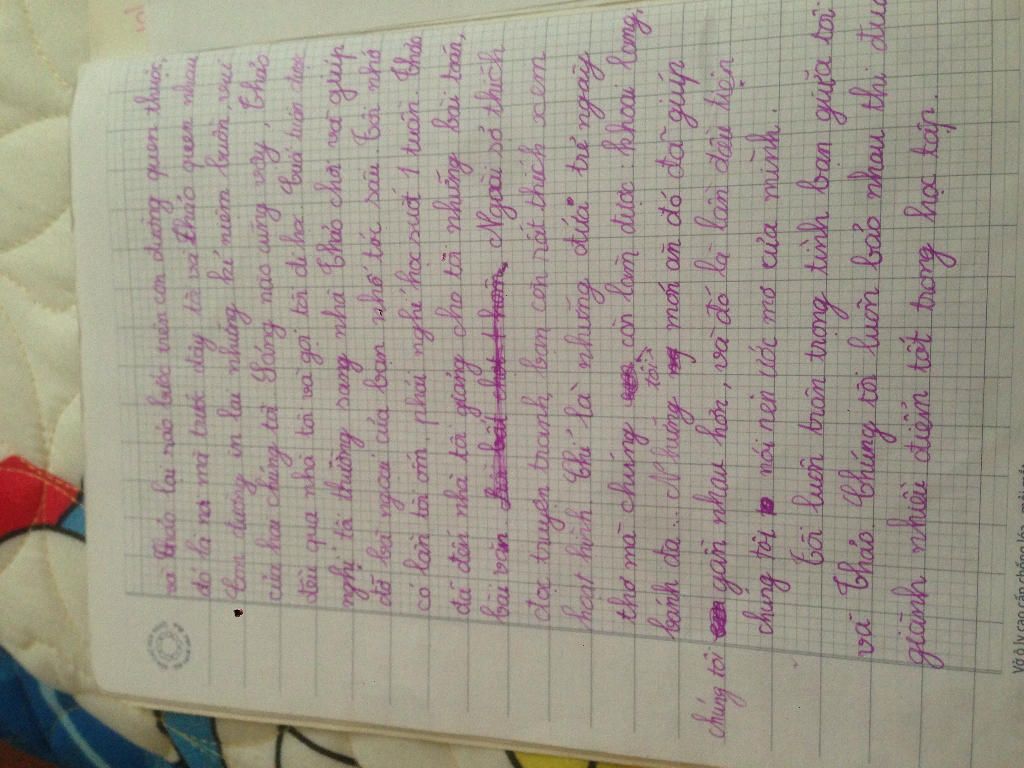 và Thảo lại rảo bước trên con đường quen thuộc,
đó là nơi mà trước đây tôi và Thảo quen nhau
Con đường in lại những kỉ niệm buồn, vui
của hai chúng tôi Sáng nào cũng vậy, Thảo
đều qua nhà tôi và gọi tôi đi học Cuối tuần được
nghỉ tôi thường sang nhà Thảo chơi và giúp
đỡ bà ngoại của bạn nhổ tóc sâu. Tôi nhớ
có lần tôi ốm phải nghỉ học suốt 1 tuần. Thảo
đã đến nhà tôi giảng cho tôi những bài toán,
bài văn Ngoài sở thích
đọc truyện tranh, bạn còn rất thích xem
hoạt hình Chỉ là những đứa trẻ ngây
thơ mà chúng tôi còn làm được: khoai lang,
bánh đa... Những món ăn đó đã giúp
chúng tôi gần nhau hơn, và đó là lần đầu tiên
chúng tôi nói nên ước mơ của mình.
Tôi luôn trân trọng tình bạn giữa tôi
và Thảo Chúng tôi luôn bảo nhau thi đua
giành nhiều điểm tốt trong học tập.